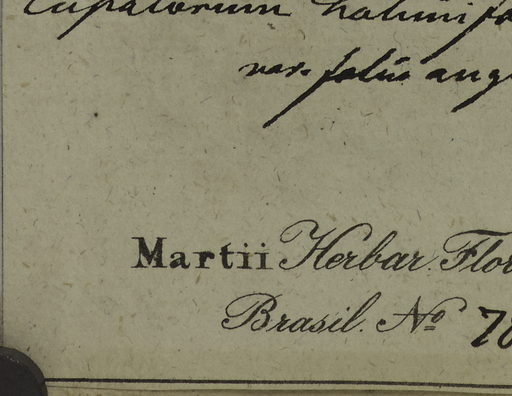 Eupatorium halimifo
var. foliis ang
Martii Herbar. Flor
Brasil. Nº 70